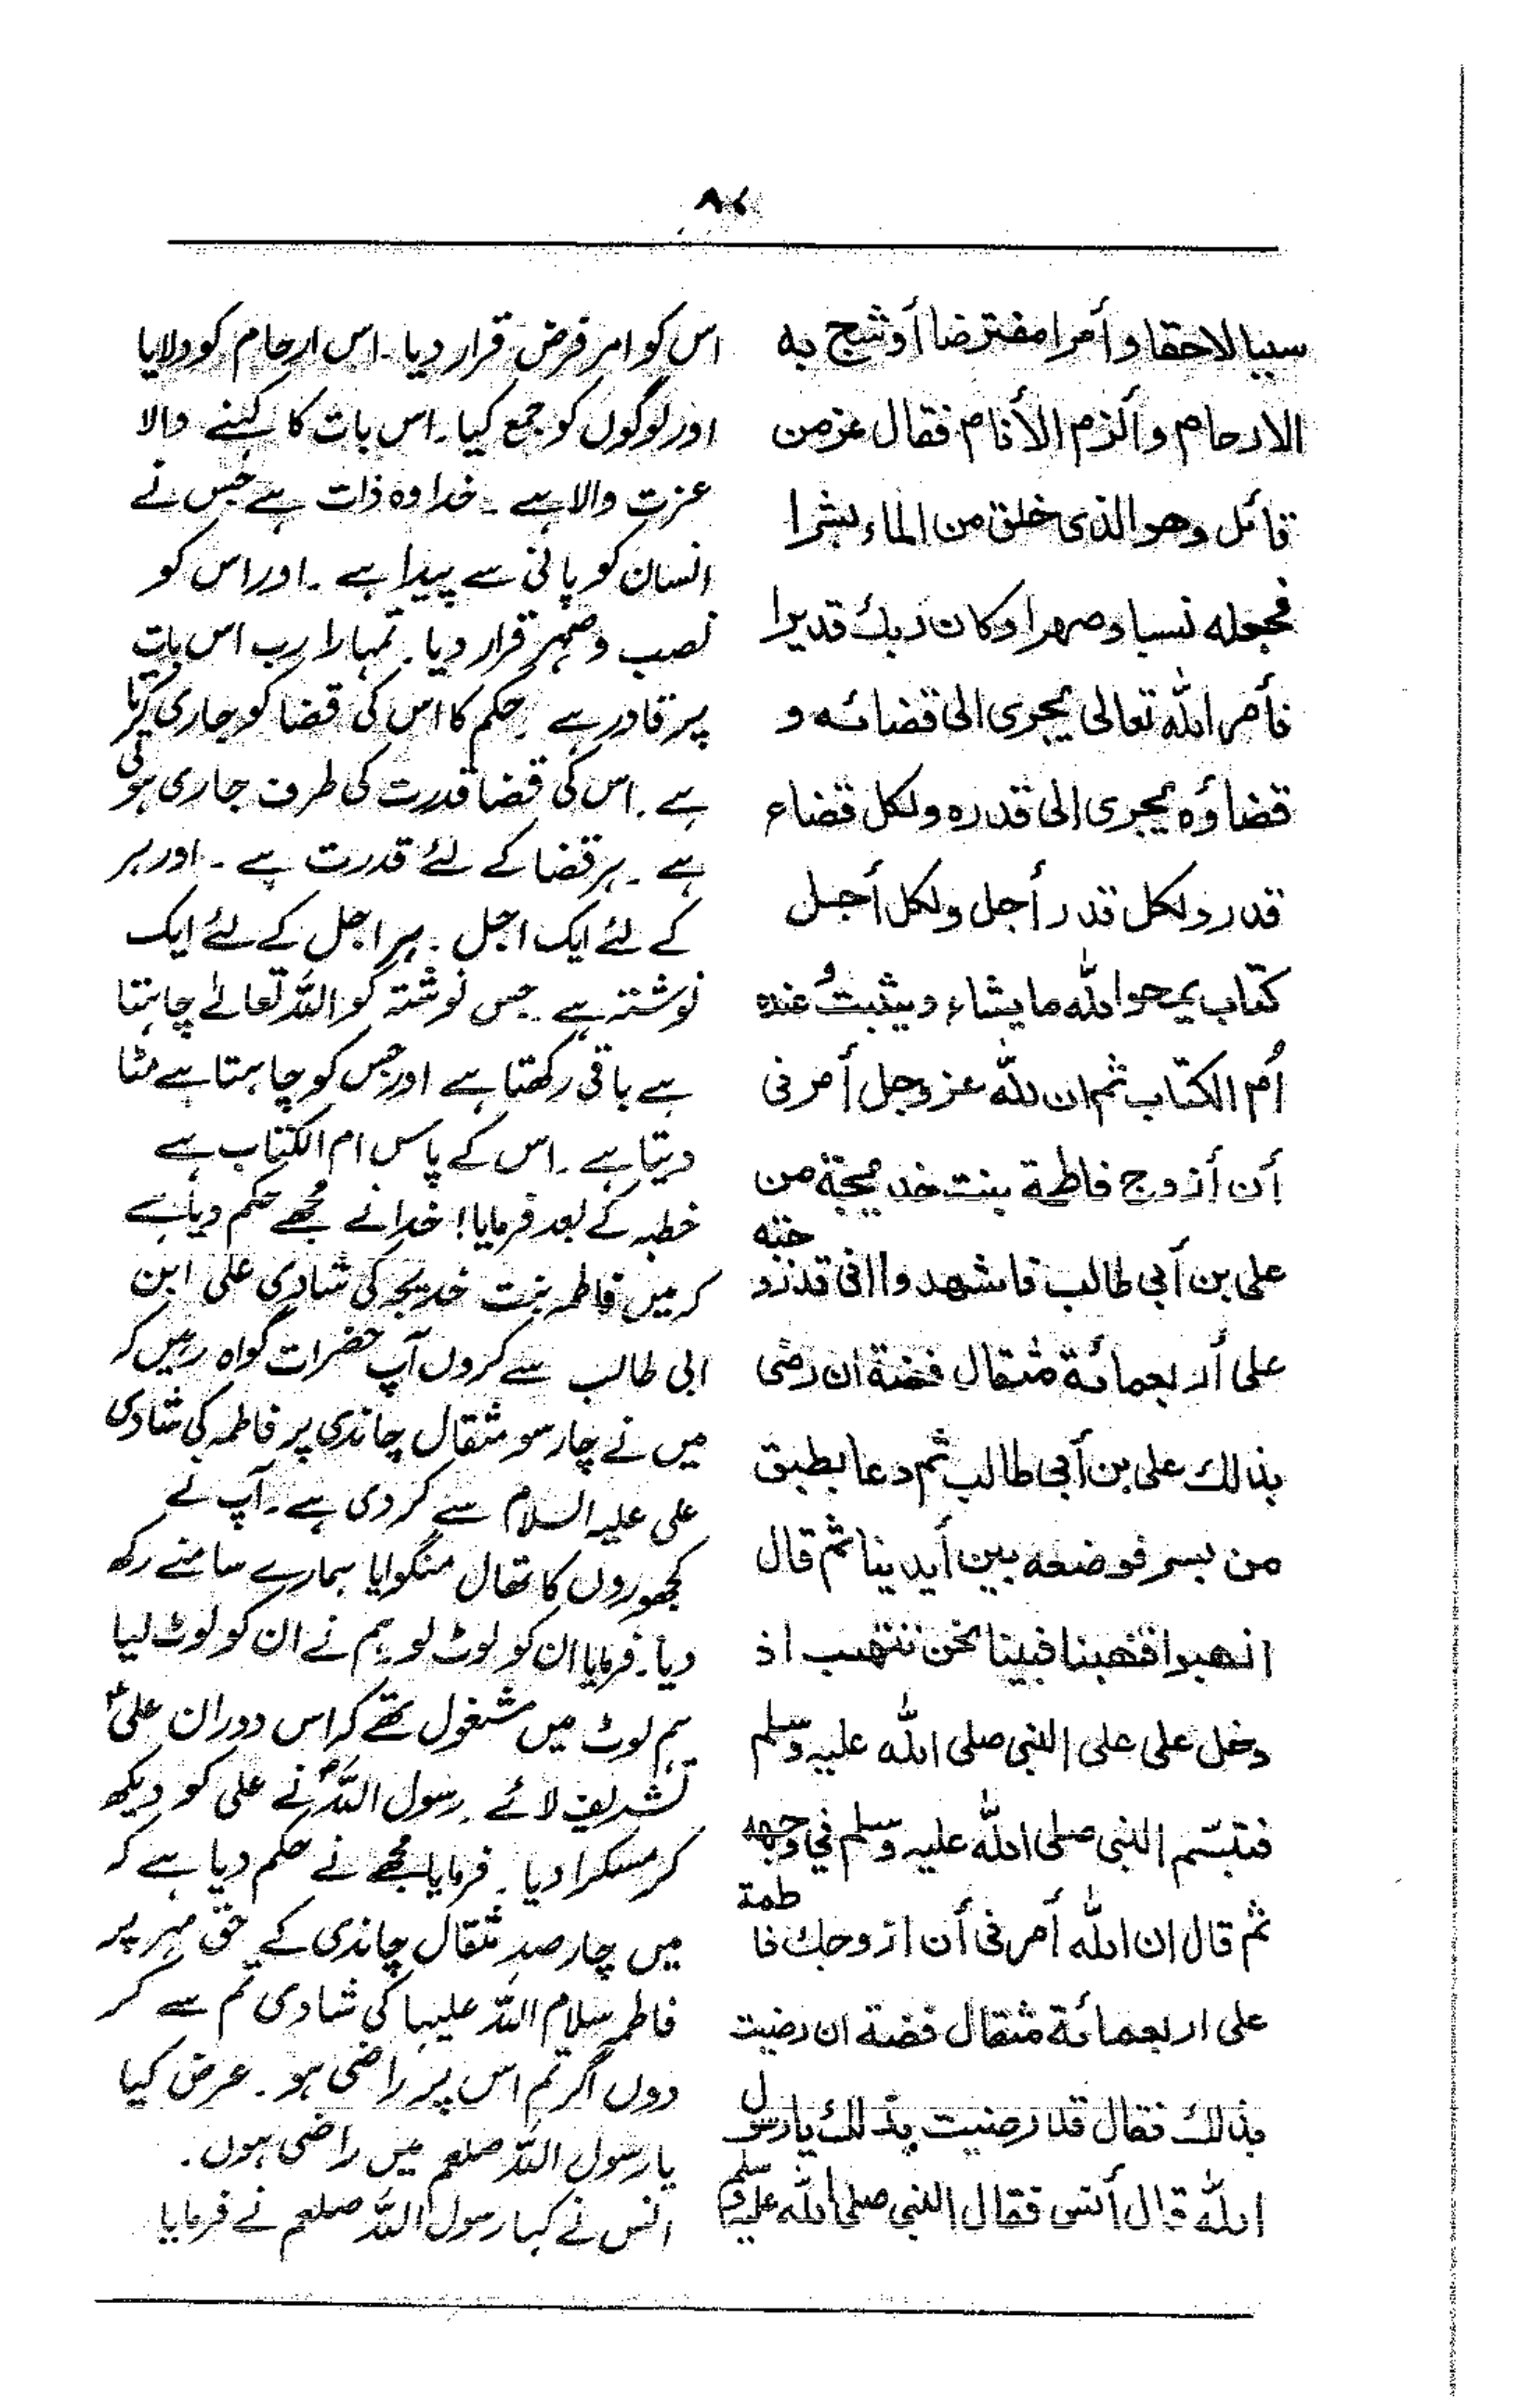 ۸۷
سببا لاحقا و أمرا مفترضا أوشج به
الارحام و ألزم الأنام فقال عز من
قائل وهو الذی خلق من الماء بشرا
فجعله نسبا وصهرا وکان ربك قدیرا
فأمر الله تعالی یجری الی قضائه و
قضاؤه یجری الی قدره ولکل قضاء
قدر ولکل قدر أجل ولکل أجل
کتاب یمحو الله ما یشاء ویثبتُ عنده
أُم الکتاب ثم ان لله عز وجل أمرنی
أن أزوج فاطمة بنت خدیجة من
علی بن أبی طالب فاشهدوا انی قد زوجته
علی أربعمائة مثقال فضة ان رضی
بذالك علی بن أبی طالب ثم دعا بطبق
من بسر فوضعه بین أیدینا ثم قال
انهبوا فنهبنا فبینا نحن ننتهب اذ
دخل علی علی النبی صلی الله علیه وسلم
فتبسّم النبی صلی الله علیه وسلم في وجهه
ثم قال ان الله أمرنی أن ازوجك فاطمة
علی اربعمائة مثقال فضة ان رضیت
بذالك فقال قد رضیت بذلك یا رسول
الله قال أنس فقال النبی صلی الله علیه وسلم
اس کو امر فرض قرار دیا۔ اس ارحام کو ولایا
اور لوگوں کو جمع کیا۔ اس بات کا کہنے والا
عزت والا ہے ۔ خدا وہ ذات ہے جس نے
انسان کو پانی سے پیدا ہے ۔ اور اس کو
نصب و صہر قرار دیا۔ تمہارا رب اس بات
پر قادر ہے ۔ حکم کا اس کی قضا کو جاری کرتا
ہے ۔ اس کی قضا قدرت کی طرف جاری ہوتی
ہے ۔ ہر قضا کے لئے قدرت ہے ۔ اور ہر
کے لئے ایک اجل ۔ ہر اجل کے لئے ایک
نوشتہ ہے ۔ جس نوشتہ کو اللہ تعالےٰ چاہتا
ہے باقی رکھتا ہے اور جس کو چاہتا ہے مٹا
دیتا ہے ۔ اس کے پاس ام الکتاب ہے
خطبہ کے بعد فرمایا! خدا نے مجھے حکم دیا ہے
کہ میں فاطمہ بنت خدیجہ کی شادی علی ابن
ابی طالب سے کروں آپ حضرات گواہ رہیں کہ
میں نے چار سو مثقال چاندی پر فاطمہ کی شادی
علی علیہ السلام سے کر دی ہے ۔ آپ نے
کھجوروں کا تھال منگوایا ہمارے سامنے رکھ
دیا۔ فرمایا ان کو لوٹ لو ہم نے ان کو لوٹ لیا
ہم لوٹ میں مشغول تھے کہ اس دوران علیؑ
تشریف لائے ۔ رسول اللہؐ نے علی کو دیکھ
کر مسکرا دیا ۔ فرمایا مجھے نے حکم دیا ہے کہ
میں چار صد مثقال چاندی کے حق مہر پر
فاطمہ سلام اللہ علیہا کی شادی تم سے کر
دوں اگر تم اس پر راضی ہو ۔ عرض کیا
یا رسول اللہ صلعم میں راضی ہوں ۔
انس نے کہا رسول اللہ صلعم نے فرمایا